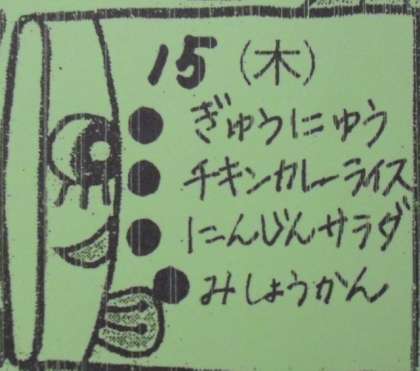 15(木)
●ぎゅうにゅう
●チキンカレーライス
●にんじんサラダ
●みしょうかん